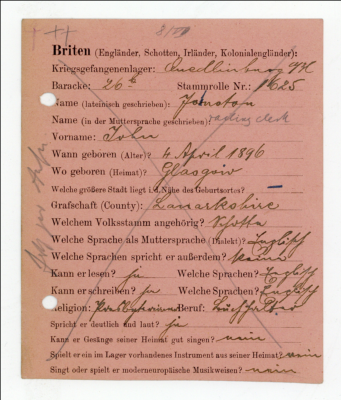 Briten (Engländer, Schotten, Irländer, Kolonialengländer):
Kriegsgefangenenlager: Quedlinburg
Baracke: 26 b Stammrolle Nr.: 1625
Name (lateinisch geschrieben): Johnston
Name (in der Muttersprache geschrieben):
Vorname: John
Wann geboren (Alter)? 4 April 1896
Wo geboren (Heimat)? Glasgow
Welche größere Stadt liegt i. d. Nähe des Geburtsortes? –
Grafschaft (County): Lanarkshire
Welchem Volksstamm angehörig? Schotte
Welche Sprache als Muttersprache (Dialekt)? Englisch
Welche Sprachen spricht er außerdem? keine
Kann er lesen? ja Welche Sprachen? Englisch
Kann er schreiben? ja Welche Sprachen? Englisch
Religion: Presbyterian Beruf: Buchhalter
Spricht er deutlich und laut? ja
Kann er Gesänge seiner Heimat gut singen? nein
Spielt er ein im Lager vorhandenes Instrument aus seiner Heimat? nein
Singt oder spielt er moderneuropäische Musikweisen? nein